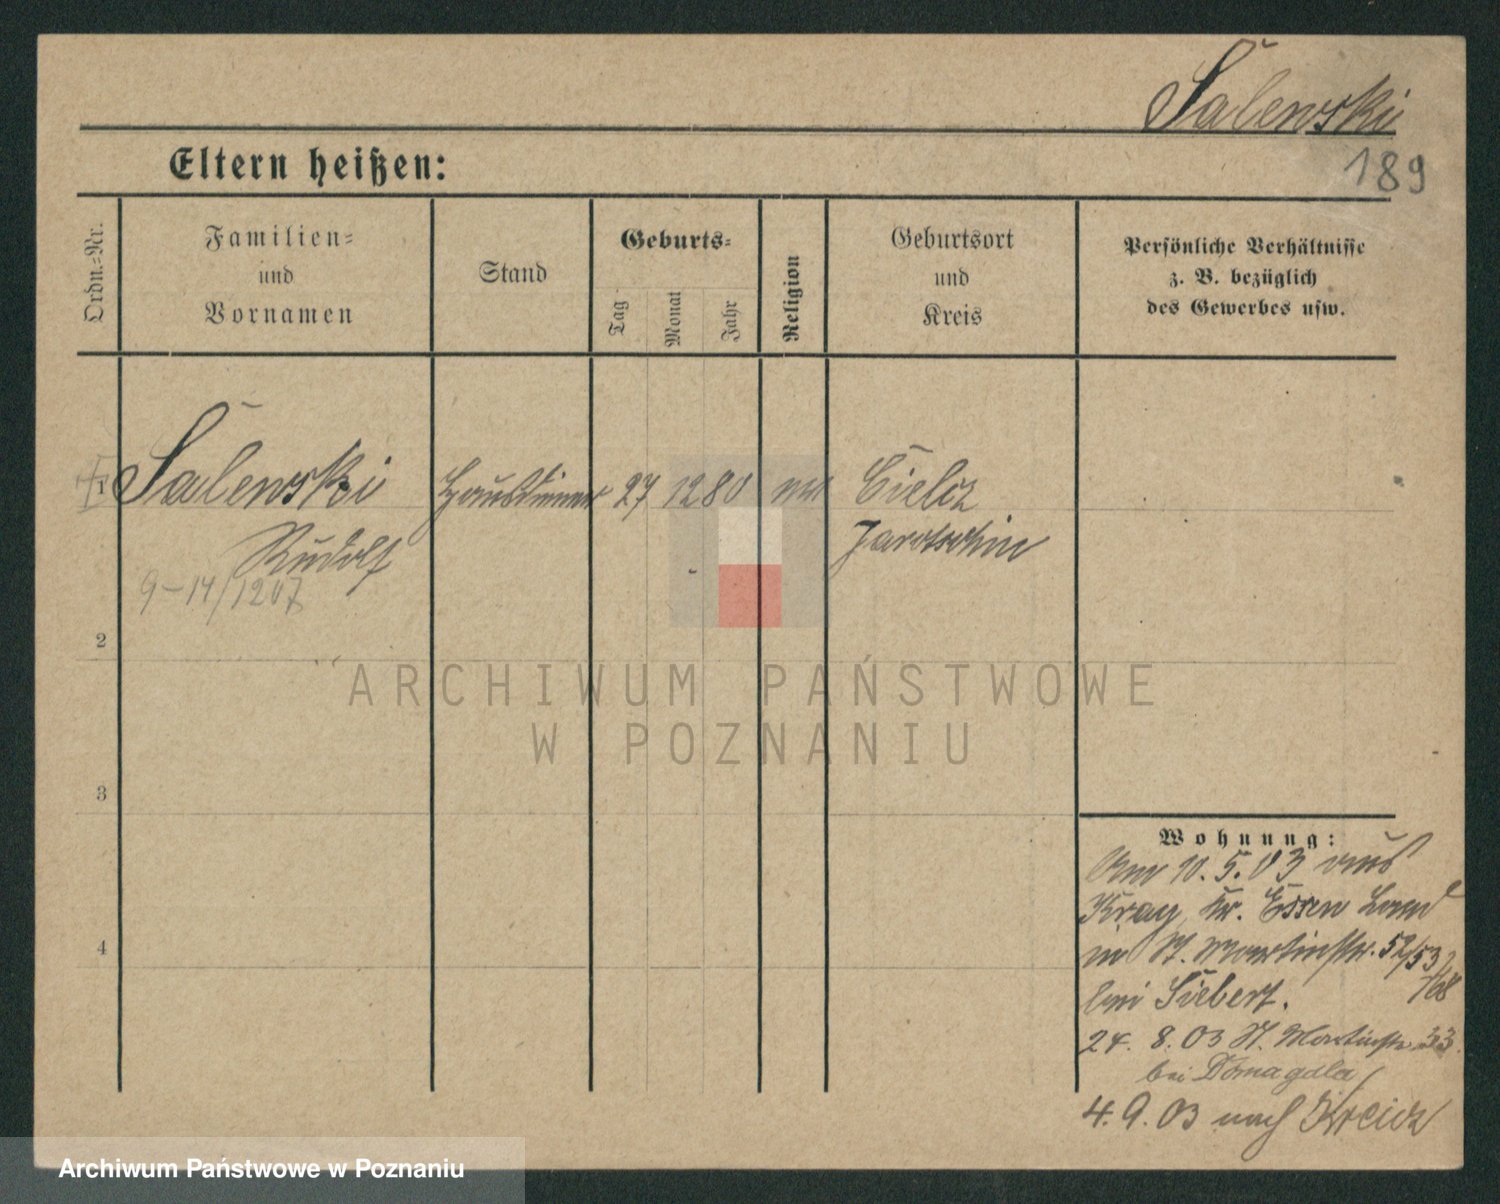 Salewski
189
Eltern heißen:
Ordn.-Nr.
Familien-
und
Vornamen
Stand
Geburts-
Tag
Monat
Jahr
Religion
Geburtsort
und
Kreis
Persönliche Verhältnisse
z. B. bezüglich
des Gewerbes usw.
1 Salewski Hausdiener 27 12 80 Cielcz
Rudolf Jarotschin
9-14/1207
2
3
4
ARCHIWUM PAŃSTWOWE
W POZNANIU
Wohnung:
Am 10.5.03 aus
Kray, Kr. Essen Land
in St. Martinstr. 52/53
/68
bei Siebert.
24. 8. 03 St. Martinstr. 33.
bei Domagala
4. 9. 03 nach
Archiwum Państwowe w Poznaniu